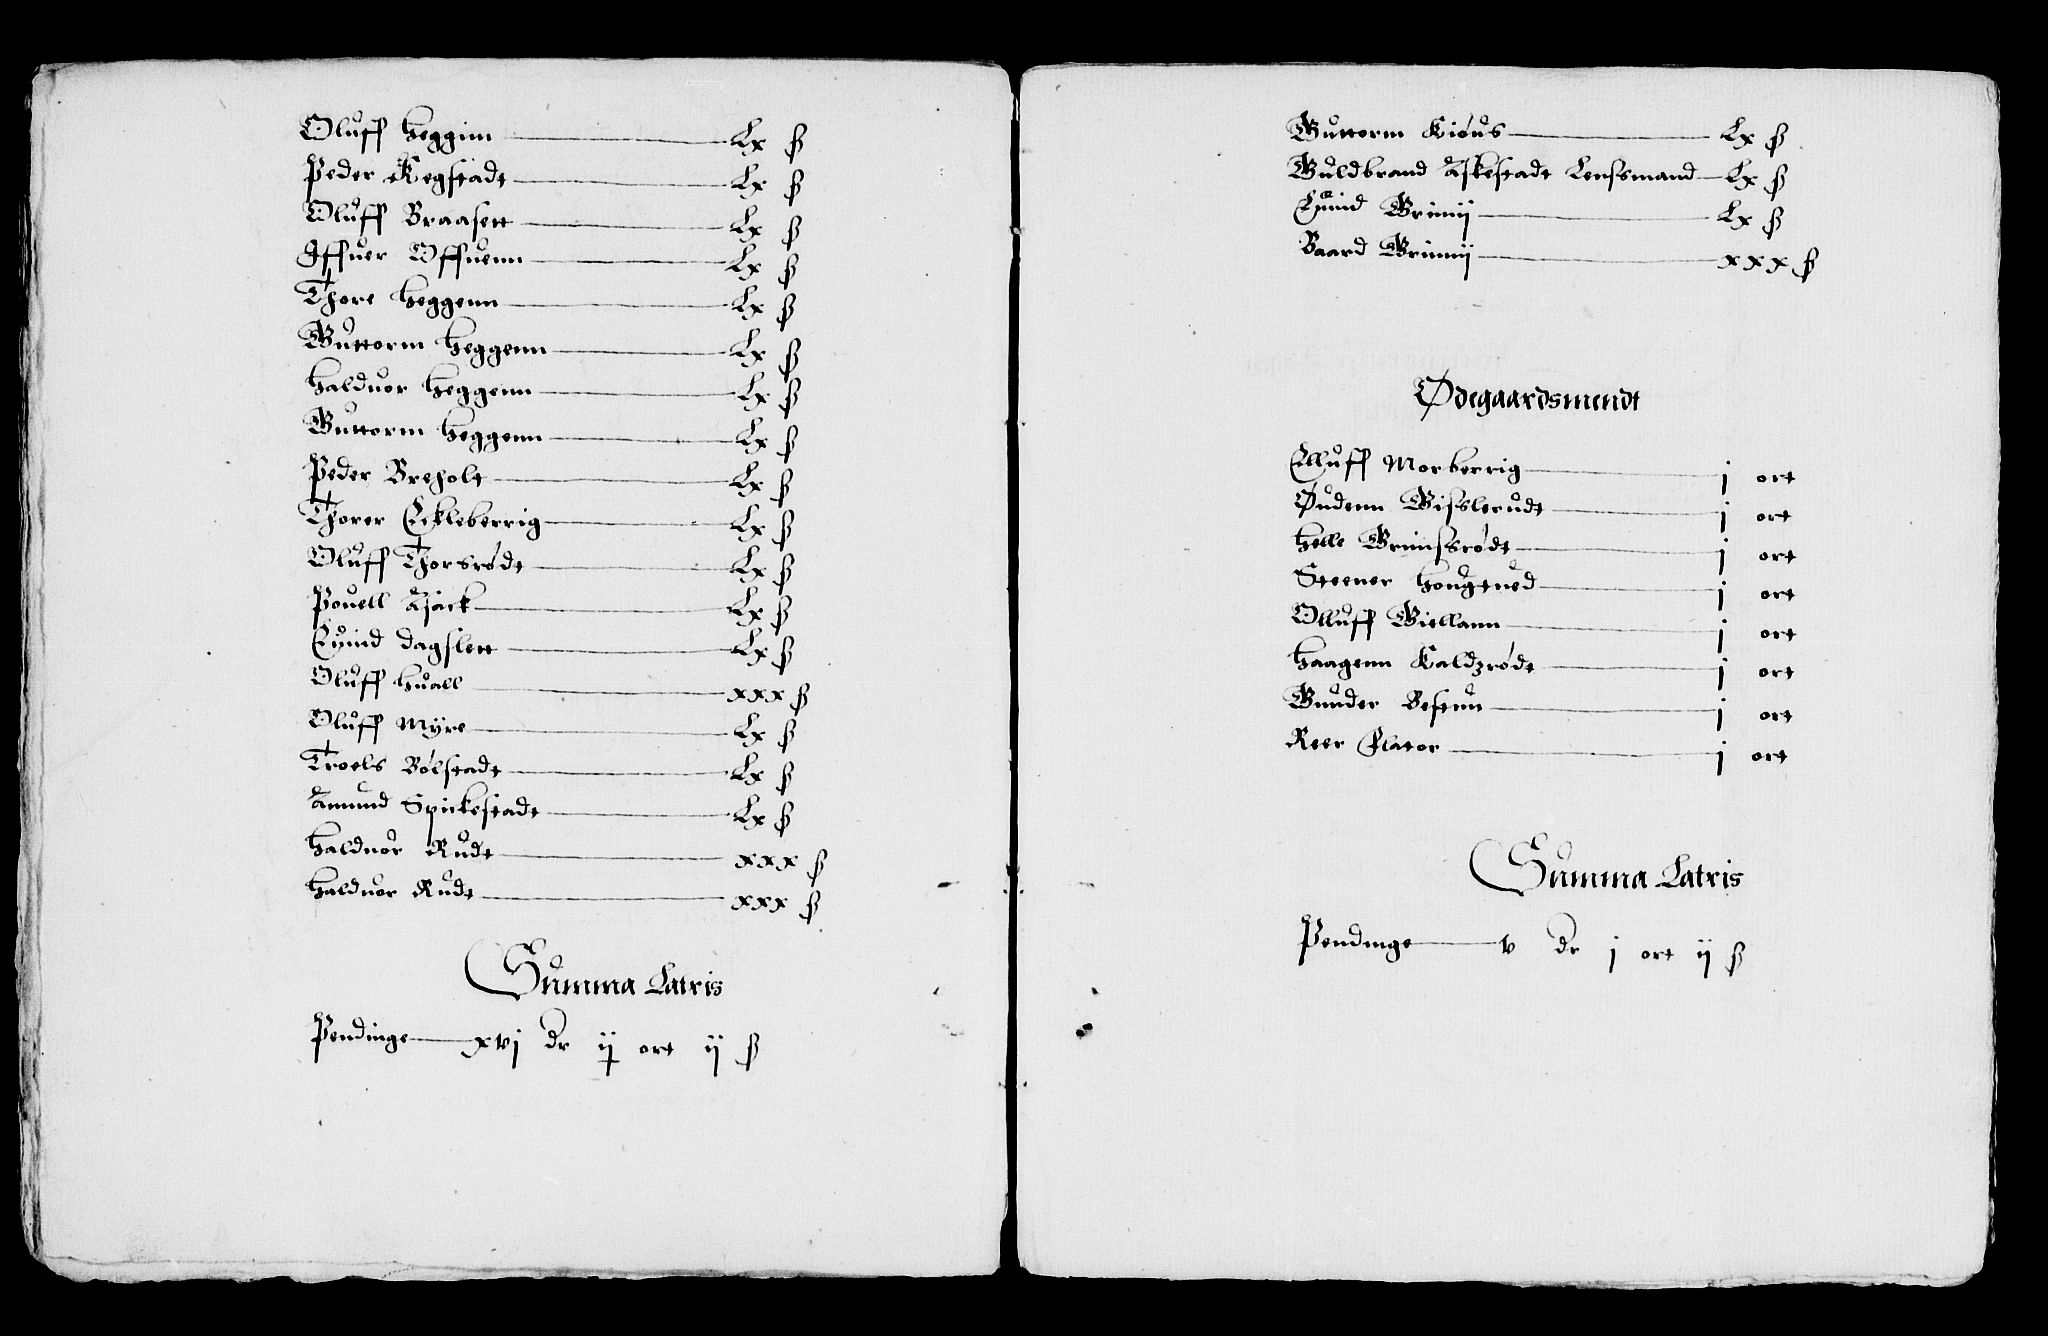 Oluff Heggim Lx ß
Peder Kegstadt Lx ß
Oluff Braasett Lx ß
Iffuer Offuenn Lx ß
Thore Heggenn Lx ß
Guttorm Heggenn Lx ß
Halduor Heggenn Lx ß
Guttorm Heggenn Lx ß
Peder Breholt Lx ß
Thorer Eckleberrig Lx ß
Oluff Thorsrødt Lx ß
Pouell Ajack Lx ß
Euind Dagslett Lx ß
Oluff Huall xxx ß
Oluff Myre Lx ß
Troels Bølstadt Lx ß
Amund Spickestadt Lx ß
Halduor Rudt xxx ß
Halduor Rudt xxx ß
Summa Latris
Pendinge xvj dr ij ort ij ß
Guttorm Kiøus Lx ß
Guldbrand Askestadt Lenssmand Lx ß
Euind Grimij Lx ß
Baard Grimij xxx ß
Ødegaardsmendt
Elluff Morberrig j ort
Øudenn Gisslerudt j ort
Helle Grimssrødt j ort
Steener Hougtued j ort
Olluff Giellann j ort
Haagenn Kaldzrødt j ort
Gunder Bestun j ort
Reer Flator j ort
Summa Latris
Pendinge v dr j ort ij ß